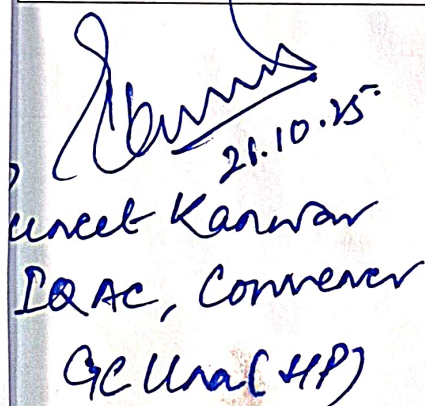 21.10.25
Puneet Kanwar
IQAC, Convener
GC Una (HP)